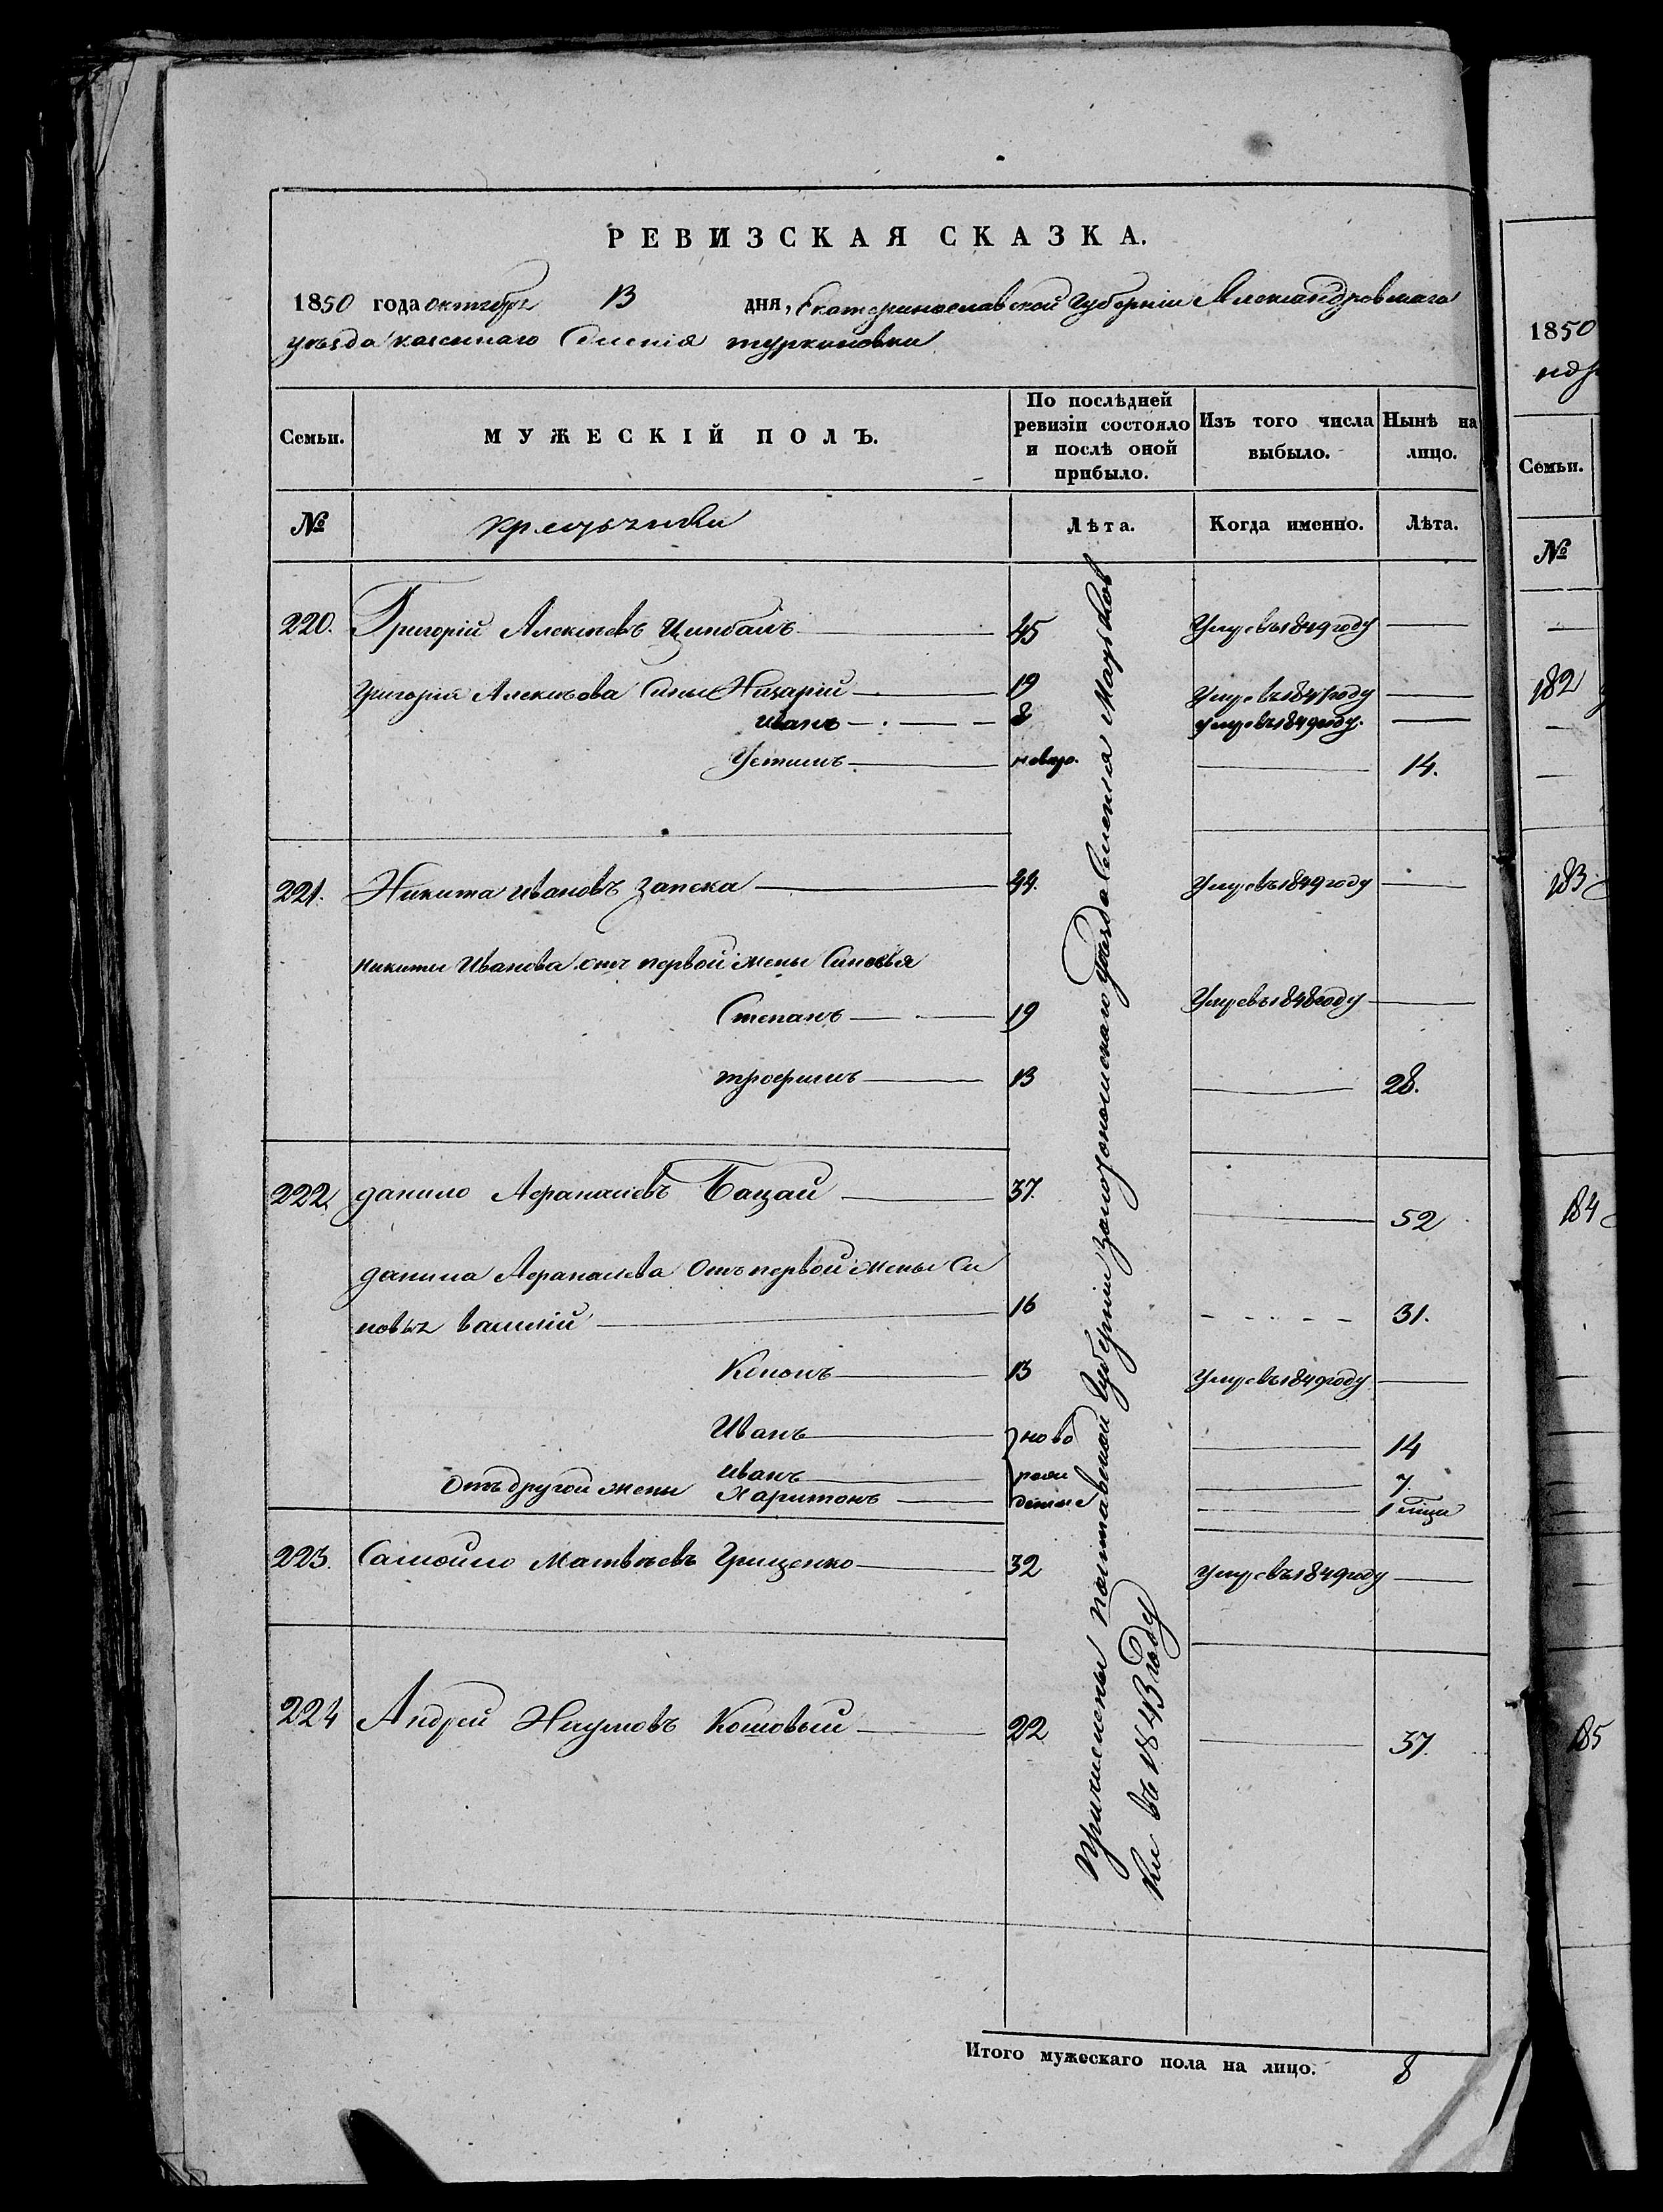 РЕВИЗСКАЯ СКАЗКА.
1850 года октября 13 дня, Екатеринославской Губерніи Александровскаго
уѣзда казеннаго Селенія туркеновки
Семьи. МУЖЕСКІЙ ПОЛЪ. По послѣдней ревизіи состояло и послѣ оной прибыло. Изъ того числа выбыло. Нынѣ на лицо.
№ Лѣта. Когда именно. Лѣта.
220. Григорій Алексѣевъ Цимбалъ 45 Умре въ 1849 году
Григорія Алексѣева Сыны Назарій 19 Умре въ 1847 году
иванъ 8 умре въ 1849 году.
Устимъ новоро. 14.
221. Никита ивановъ Запека 44. Умре въ 1849 году
Никиты Иванова отъ первой жены Сыновья
Степанъ 19 Умре въ 1848 году
трофимъ 13 28.
222. данило Афанасіевъ Бацай 37. 52
данила Афанасіева Отъ первой жены Сы
новья василій 16 31.
Кононъ 13 Умре въ 1849 году
Иванъ ново 14
иванъ рож 7.
Отъ другой жены Харитонъ денные 1
223. Самойло Матвѣевъ Грищенко 32 Умре въ 1849 году
224 Андрей Наумовъ Кошовый 22 37.
Причислены Полтавской Губерніи Золотоношскаго уѣзда Селенія Мацьков
ки въ 1843 году
Итого мужескаго пола на лицо. 8
1850
Семьи.
№
182
183
184
185